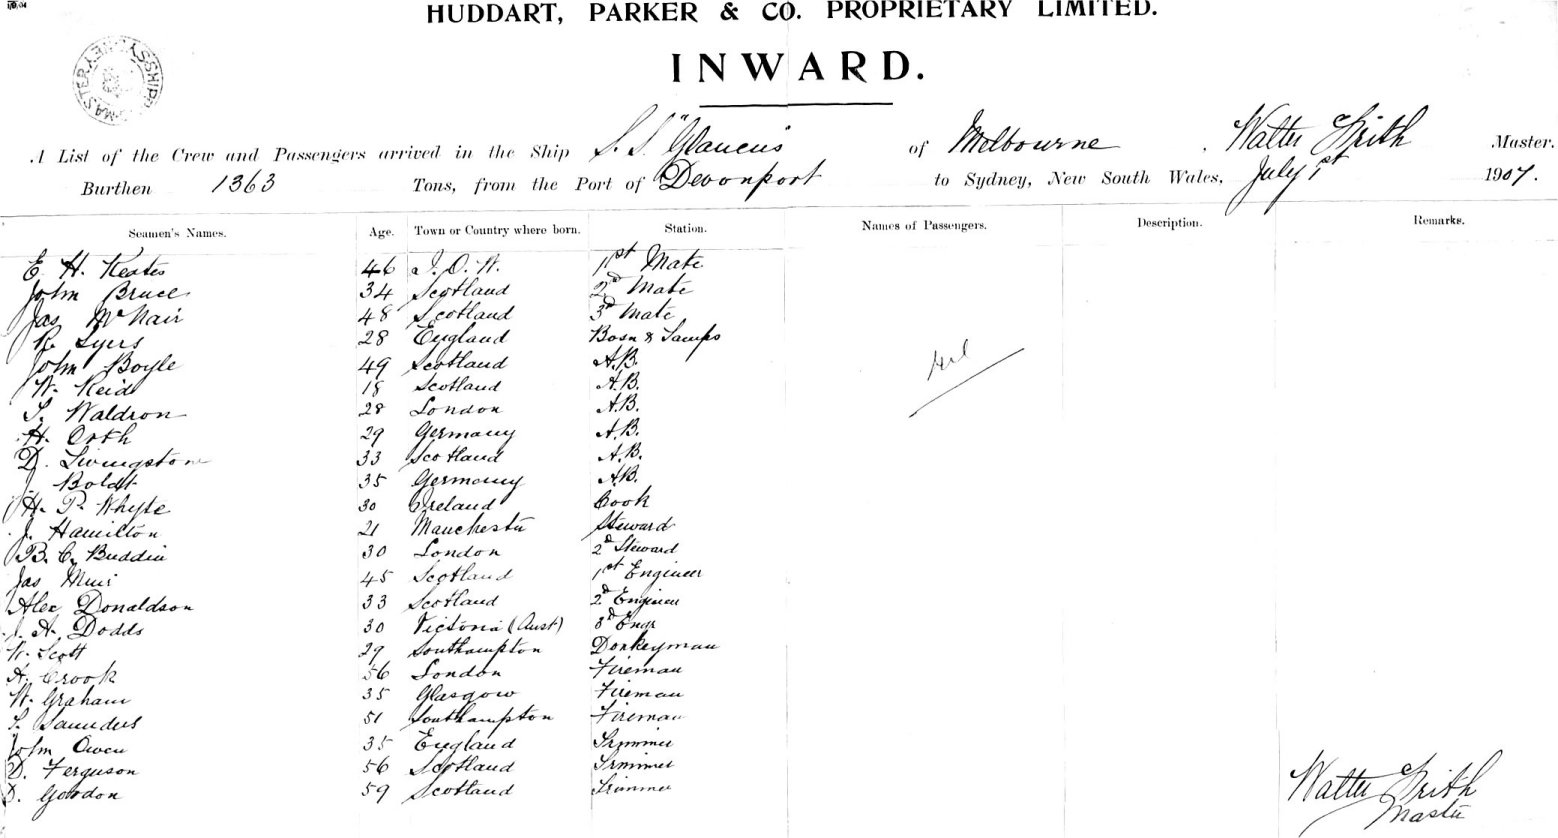 HUDDART, PARKER & CO. PROPRIETARY LIMITED.
INWARD.
A List of the Crew and Passengers arrived in the Ship S.S. "Glaucus" of Melbourne, Walter Frith Master.
Burthen 1363 Tons, from the Port of Devonport to Sydney, New South Wales, July 1st 1907.
Seamen's Names. Age. Town or Country where born. Station. Names of Passengers. Description. Remarks.
E. H. Keates 46 I. O. W. 1st Mate
John Bruce 34 Scotland 2nd Mate
Jas McNair 48 Scotland 3rd Mate
R. Syers 28 England Bosn & Lamps
John Boyle 49 Scotland A.B.
W. Reid 18 Scotland A.B.
S. Waldron 28 London A.B.
H. Orth 29 Germany A.B.
D. Livingstone 33 Scotland A.B.
J. Boldt 35 Germany A.B.
H. P. Whyte 30 Ireland Cook
J. Hamilton 21 Manchester Steward
B. C. Buddin 30 London 2d Steward
Jas Muir 45 Scotland 1st Engineer
Alec Donaldson 33 Scotland 2d Engineer
J. H. Dodds 30 Victoria (Aust) 3d Engr
W. Scott 29 Southampton Donkeyman
H. Crook 56 London Fireman
W. Graham 35 Glasgow Fireman
S. Saunders 51 Southampton Fireman
John Owen 35 England Trimmer
D. Ferguson 56 Scotland Trimmer
D. Gordon 59 Scotland Trimmer
Walter Frith
Master